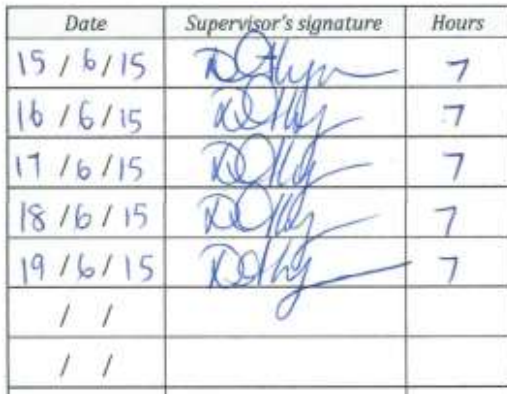 Date Supervisor's signature Hours
15 / 6 / 15 7
16 / 6 / 15 7
17 / 6 / 15 7
18 / 6 / 15 7
19 / 6 / 15 7
/ /
/ /